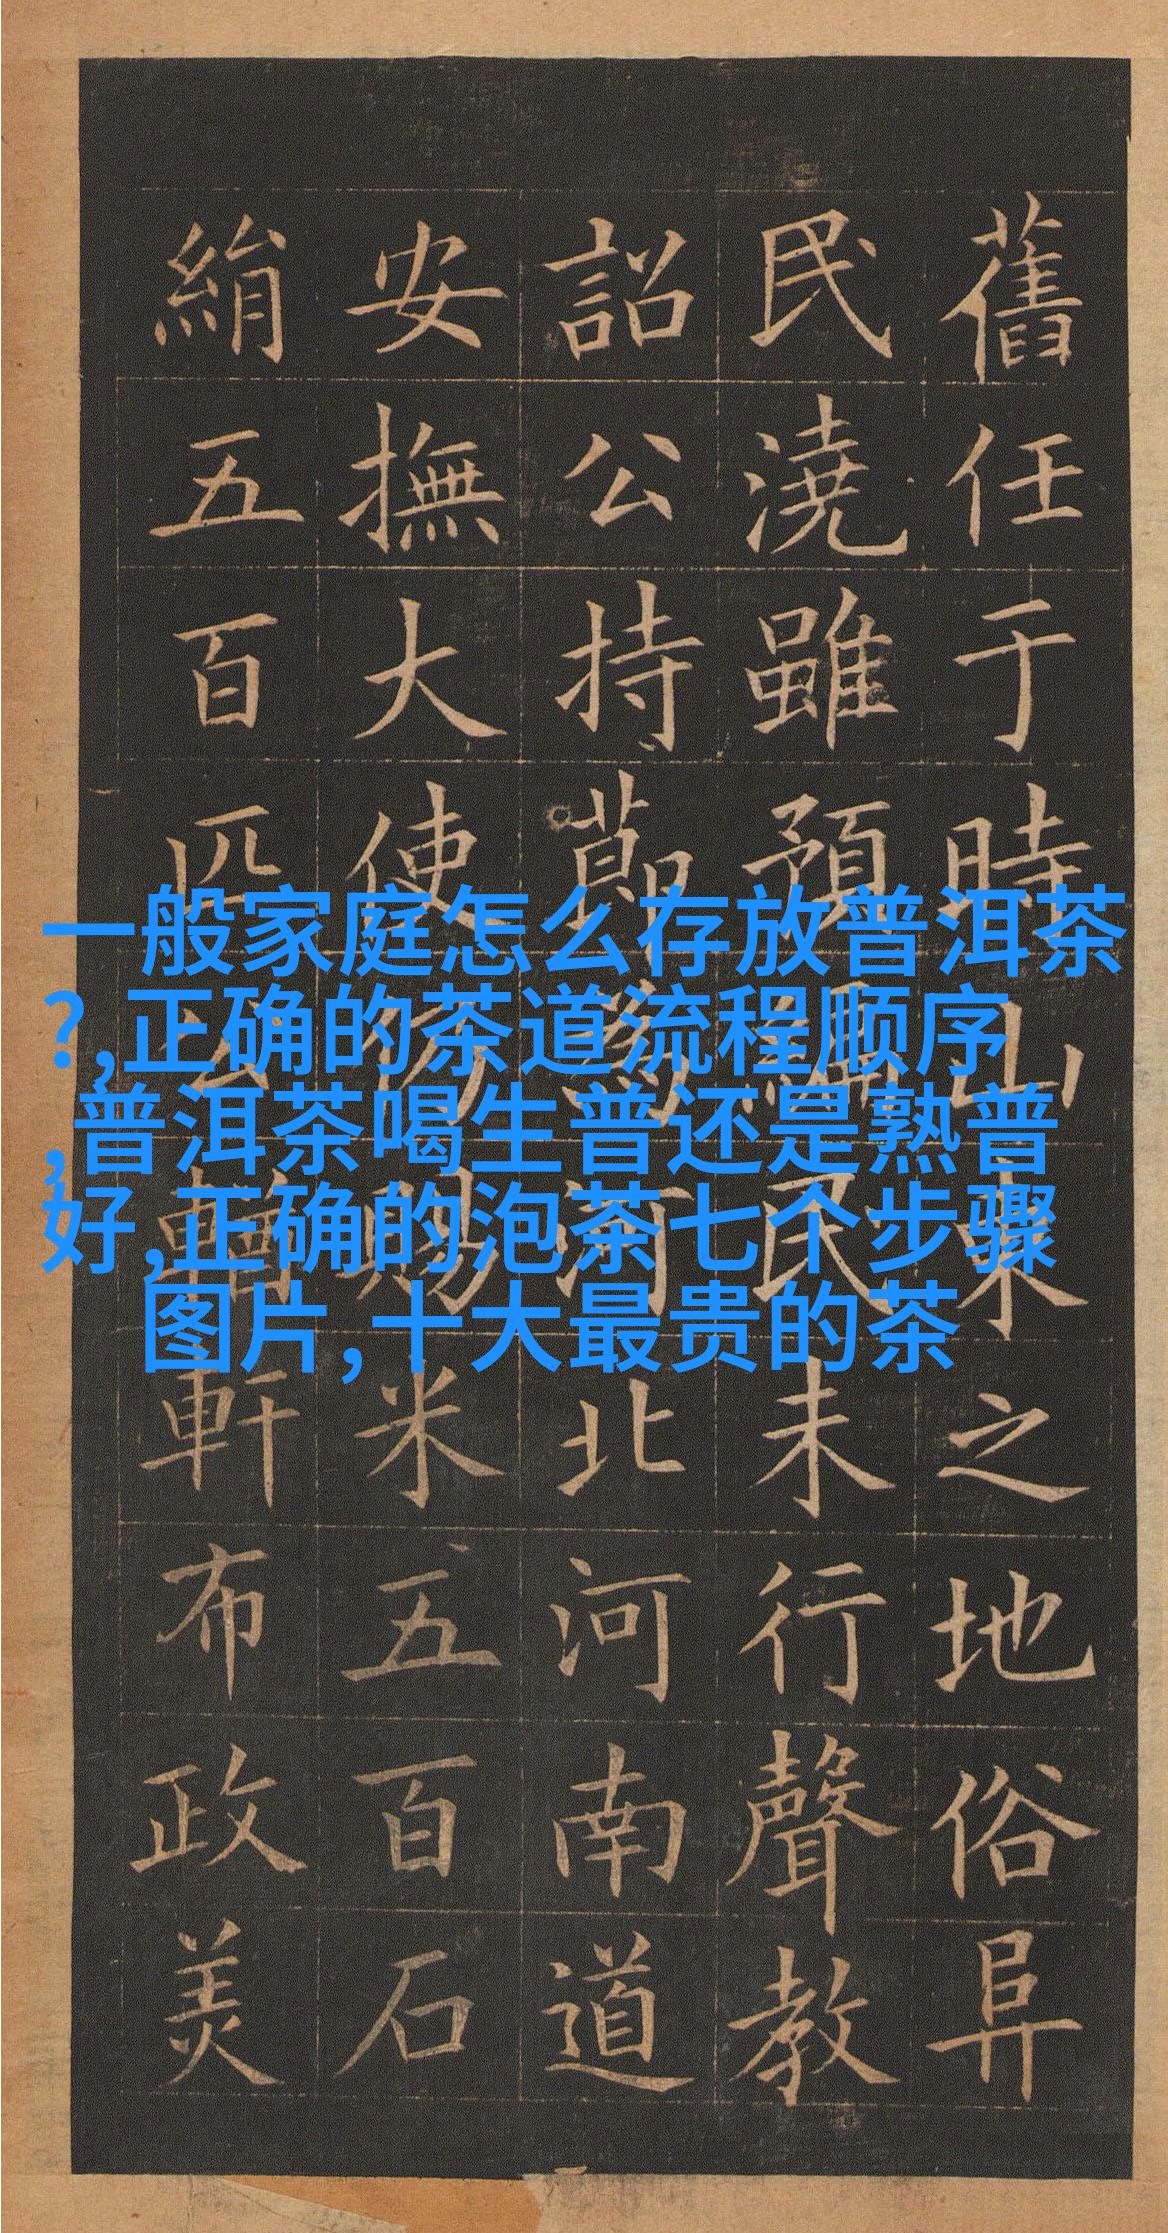 舊任于時山東之地俗阜
民澆雖預編民未行聲教
詔公持節為河北河南道
安撫大使仍賜米五百石
絹五百匹公輶軒布政美
一般家庭怎么存放普洱茶
?,正确的茶道流程顺序
,普洱茶喝生普还是熟普
好,正确的泡茶七个步骤
图片,十大最贵的茶